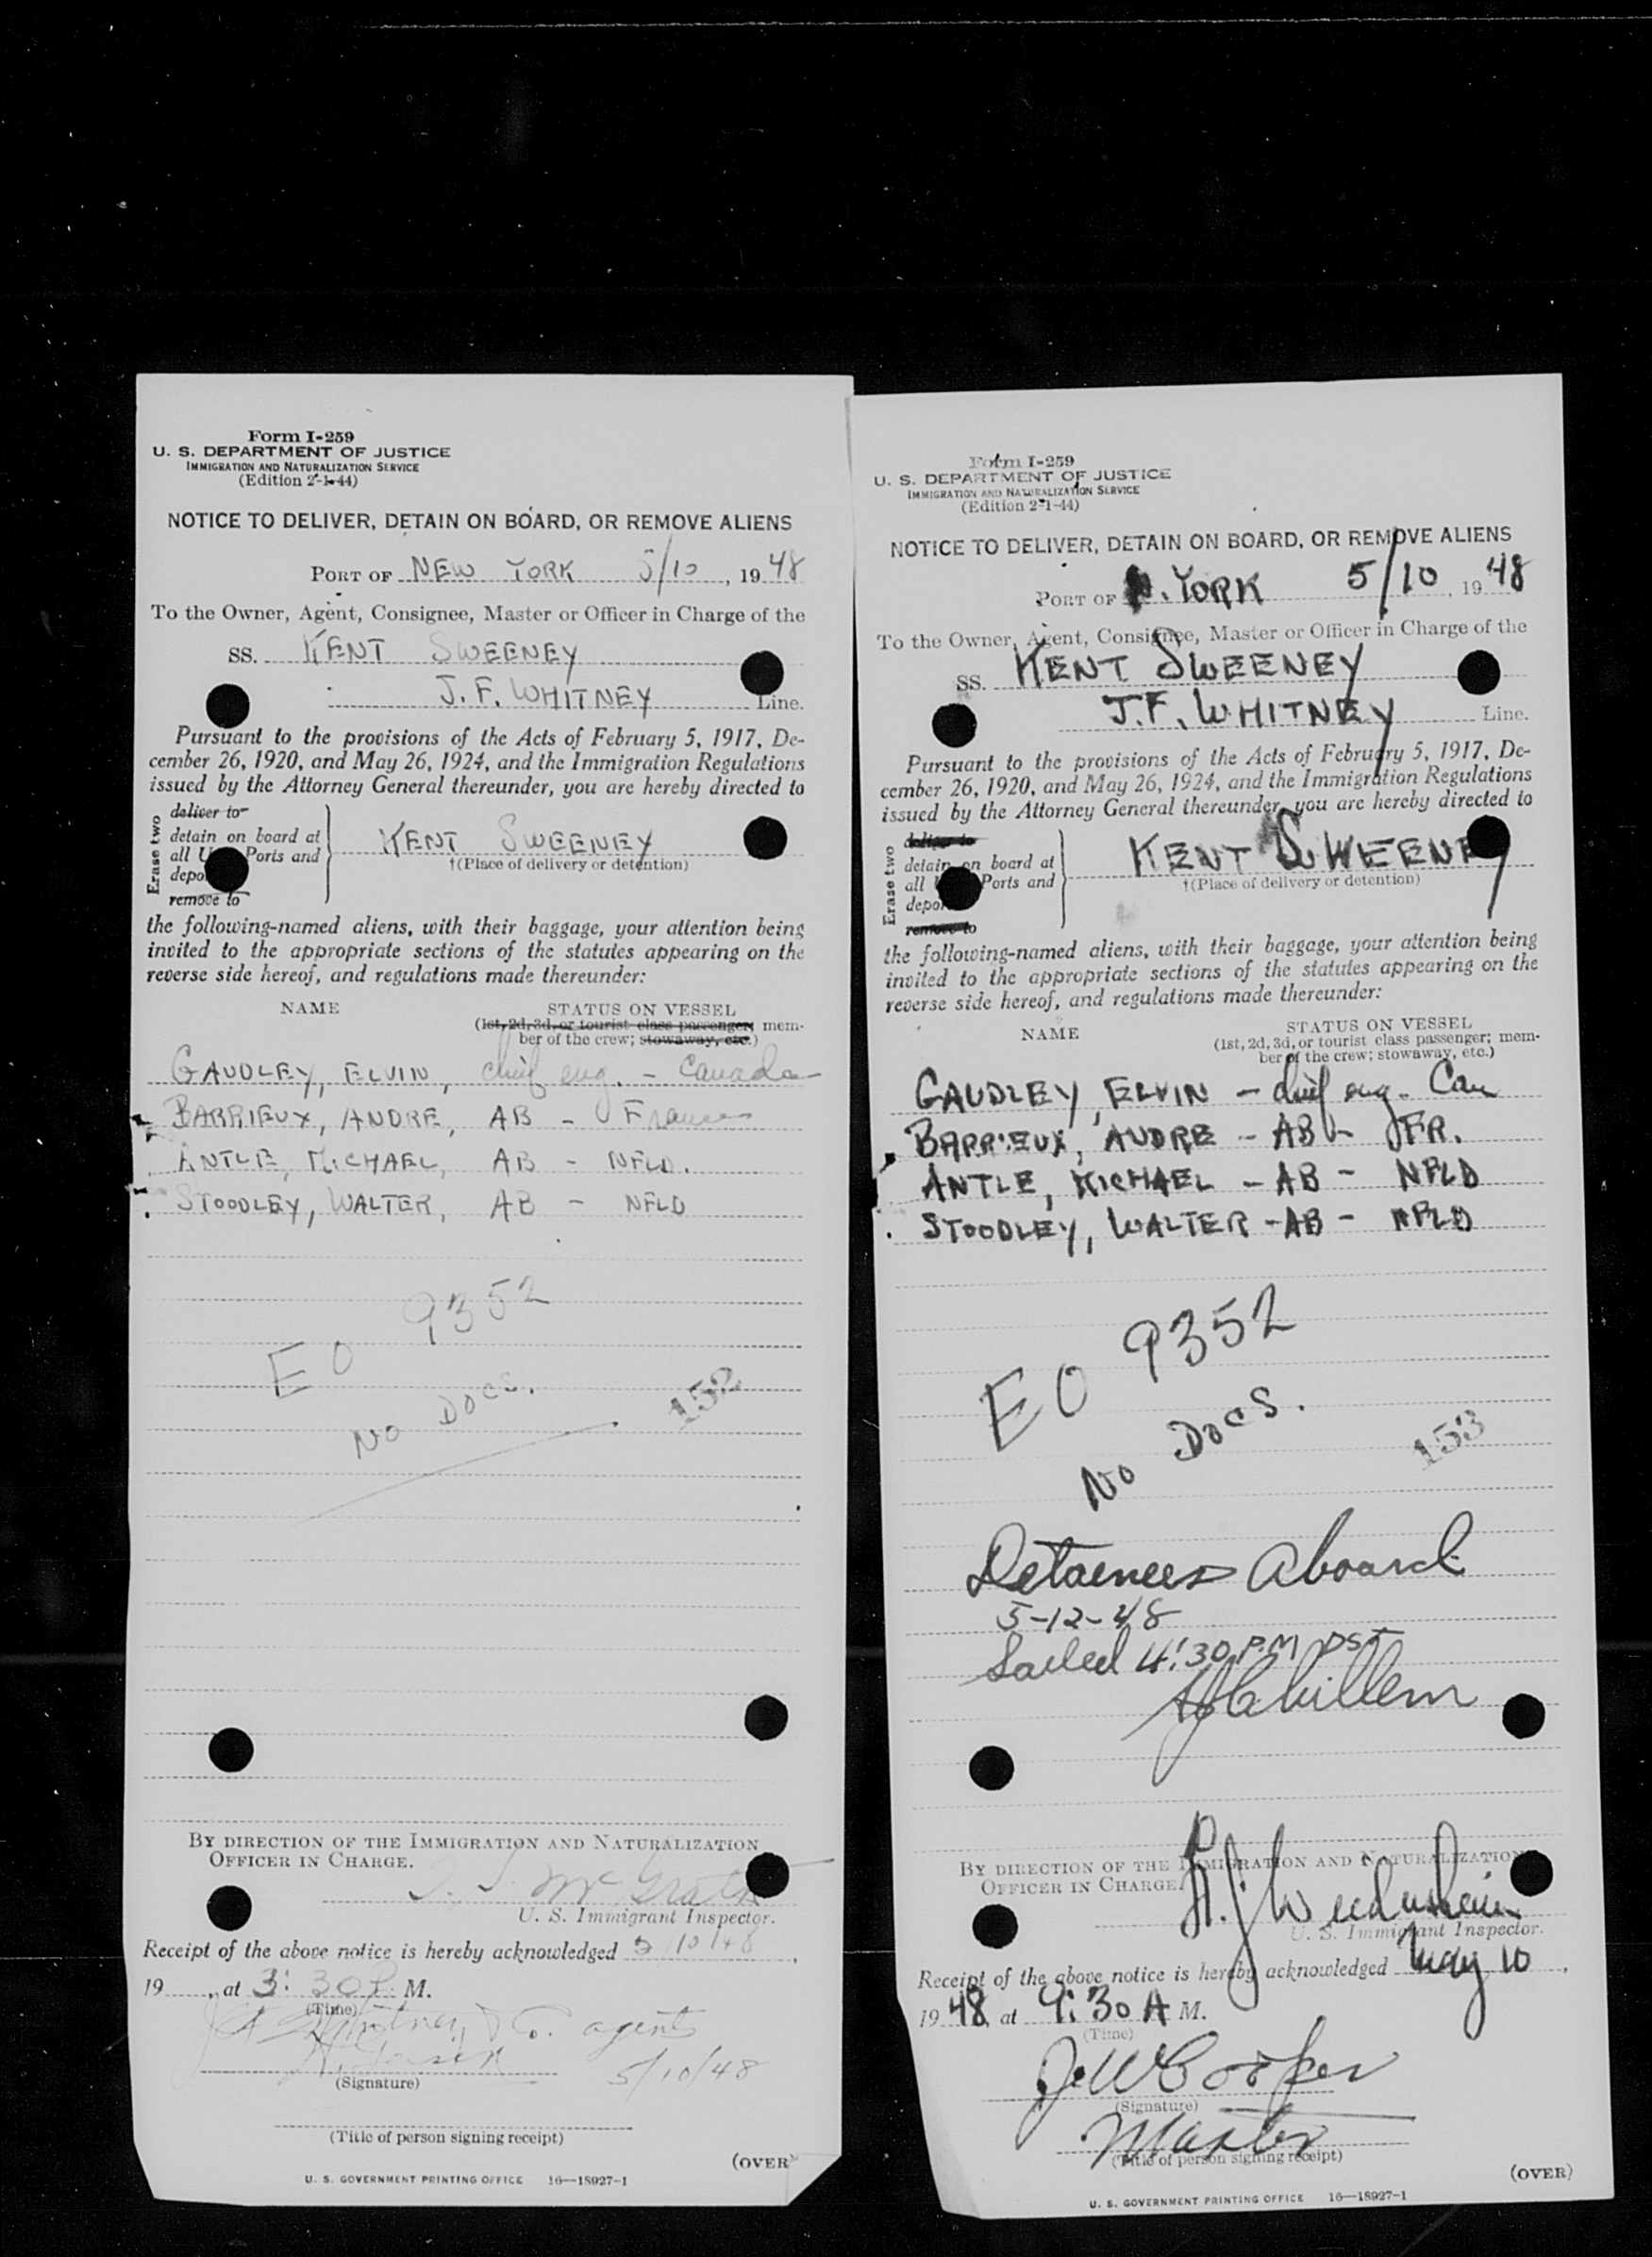 Form I-259
U. S. DEPARTMENT OF JUSTICE
IMMIGRATION AND NATURALIZATION SERVICE
(Edition 2-1-44)
NOTICE TO DELIVER, DETAIN ON BOARD, OR REMOVE ALIENS
PORT OF NEW YORK 5/10, 1948
To the Owner, Agent, Consignee, Master or Officer in Charge of the
SS. KENT SWEENEY
J. F. WHITNEY Line.
Pursuant to the provisions of the Acts of February 5, 1917, De-
cember 26, 1920, and May 26, 1924, and the Immigration Regulations
issued by the Attorney General thereunder, you are hereby directed to
Erase two
deliver to
detain on board at
all U Ports and
depo
remove to
KENT SWEENEY
†(Place of delivery or detention)
the following-named aliens, with their baggage, your attention being
invited to the appropriate sections of the statutes appearing on the
reverse side hereof, and regulations made thereunder:
NAME STATUS ON VESSEL
(1st, 2d, 3d, or tourist class passenger; mem-
ber of the crew; stowaway, etc.)
GAUDLEY, ELVIN, chief eng. - Canada
BARRIEUX, ANDRE, AB - France
ANTLE, MICHAEL, AB - NFLD.
STOODLEY, WALTER, AB - NFLD
EO 9352
No Docs.
152
BY DIRECTION OF THE IMMIGRATION AND NATURALIZATION
OFFICER IN CHARGE.
McGrath
U. S. Immigrant Inspector.
Receipt of the above notice is hereby acknowledged 5/10/48,
19 , at 3:30 P. M.
(Time)
J F Whitney & Co. agents
5/10/48
(Signature)
(Title of person signing receipt)
(OVER)
U. S. GOVERNMENT PRINTING OFFICE 16—18927-1
Form I-259
U. S. DEPARTMENT OF JUSTICE
IMMIGRATION AND NATURALIZATION SERVICE
(Edition 2-1-44)
NOTICE TO DELIVER, DETAIN ON BOARD, OR REMOVE ALIENS
PORT OF N. YORK 5/10, 1948
To the Owner, Agent, Consignee, Master or Officer in Charge of the
SS. KENT SWEENEY
J.F. WHITNEY Line.
Pursuant to the provisions of the Acts of February 5, 1917, De-
cember 26, 1920, and May 26, 1924, and the Immigration Regulations
issued by the Attorney General thereunder, you are hereby directed to
Erase two
deliver to
detain on board at
all Ports and
depor
remove to
KENT SWEENEY
†(Place of delivery or detention)
the following-named aliens, with their baggage, your attention being
invited to the appropriate sections of the statutes appearing on the
reverse side hereof, and regulations made thereunder:
NAME STATUS ON VESSEL
(1st, 2d, 3d, or tourist class passenger; mem-
ber of the crew; stowaway, etc.)
GAUDLEY, ELVIN - chief eng. Can
BARRIEUX, ANDRE - AB - FR.
ANTLE, MICHAEL - AB - NFLD
STOODLEY, WALTER - AB - NFLD
EO 9352
No Docs.
153
Detainees Aboard
5-12-48
Sailed 4:30 P.M DST
BY DIRECTION OF THE IMMIGRATION AND NATURALIZATION
OFFICER IN CHARGE.
U. S. Immigrant Inspector.
Receipt of the above notice is hereby acknowledged May 10,
1948, at 9:30 A M.
(Time)
J.W Cooper
(Signature)
Master
(Title of person signing receipt)
(OVER)
U. S. GOVERNMENT PRINTING OFFICE 16—18927-1